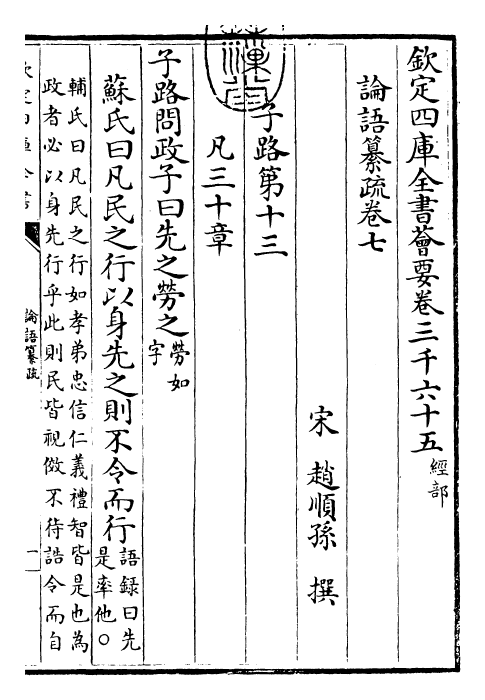 欽定四庫全書薈要卷三千六十五 經部
論語纂疏卷七
宋 趙順孫 撰
子路第十三
凡三十章
子路問政子曰先之勞之 勞如字
蘇氏曰凡民之行以身先之則不令而行 語錄曰先是率他○
輔氏曰凡民之行如孝弟忠信仁義禮智皆是也為
政者必以身先行乎此則民皆視傚不待誥令而自
論語纂疏
一